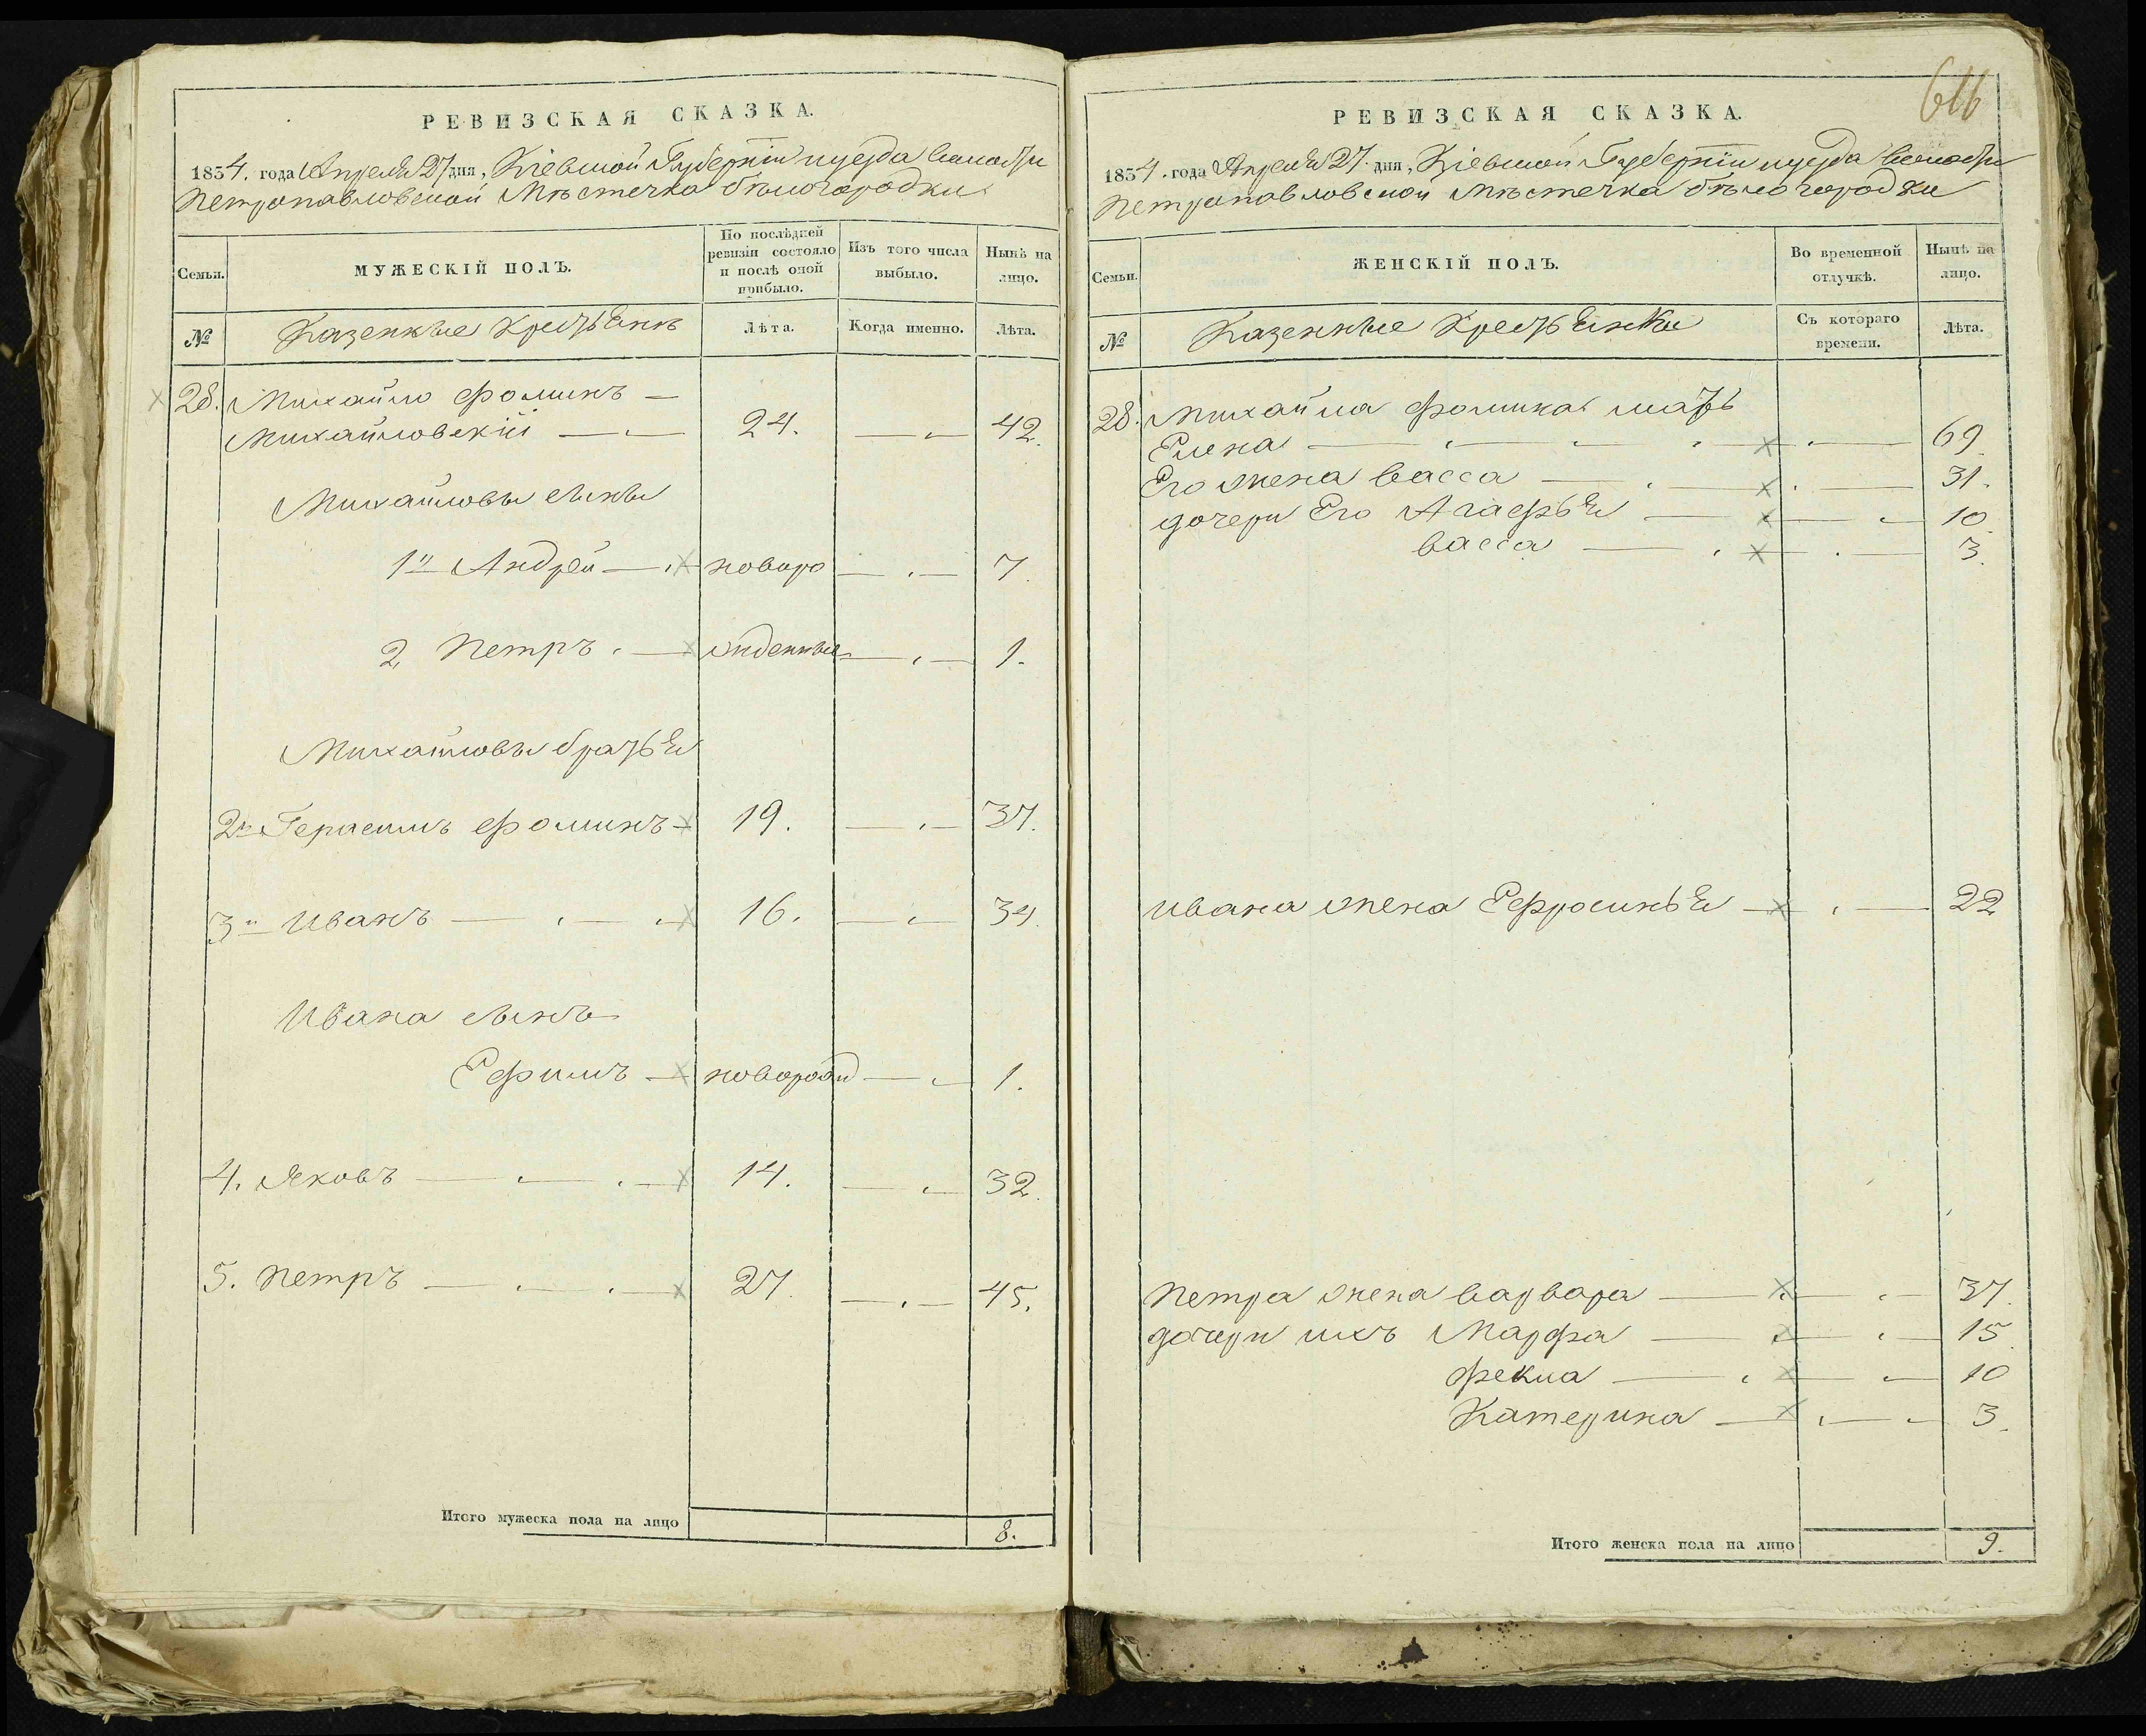 РЕВИЗСКАЯ СКАЗКА.
1854. года Апреля 27 дня, Кіевской Губерніи и уезда волости
Петропавловской Мѣстечка Бѣлогородки
Семьи.
МУЖЕСКІЙ ПОЛЪ.
По послѣдней ревизіи состояло и послѣ оной прибыло.
Изъ того числа выбыло.
Нынѣ на лицо.
№
Казенные Крестьяне
Лѣта.
Когда именно.
Лѣта.
28. Михайло Фоминъ —
Михайловскій — 24. — 42.
Михайловы сыны
1й Андрей — новоро — 7.
2 Петръ — жденные — 1.
Михайловы братья
2й Герасимъ Фоминъ — 19. — 37.
3й Иванъ — 16. — 34.
Ивана сынъ
Ефимъ — новорожд — 1.
4. Яковъ — 14. — 32.
5. Петръ — 27. — 45.
Итого мужеска пола на лицо 8.
616
РЕВИЗСКАЯ СКАЗКА.
1854. года Апреля 27. дня, Кіевской Губерніи и уезда волости
Петропавловской Мѣстечка Бѣлогородки
Семьи.
ЖЕНСКІЙ ПОЛЪ.
Во временной отлучкѣ.
Нынѣ на лицо.
№
Казенные Крестьянки
Съ котораго времени.
Лѣта.
28. Михайла Фомина мать
Елена — 69.
Его жена Васса — 31.
дочери Его Агафья — 10.
Васса — 3.
Ивана жена Ефросинья — 22
Петра жена Варвара — 37.
дочери ихъ Марфа — 15.
Фекла — 10
Катерина — 3.
Итого женска пола на лицо 9.